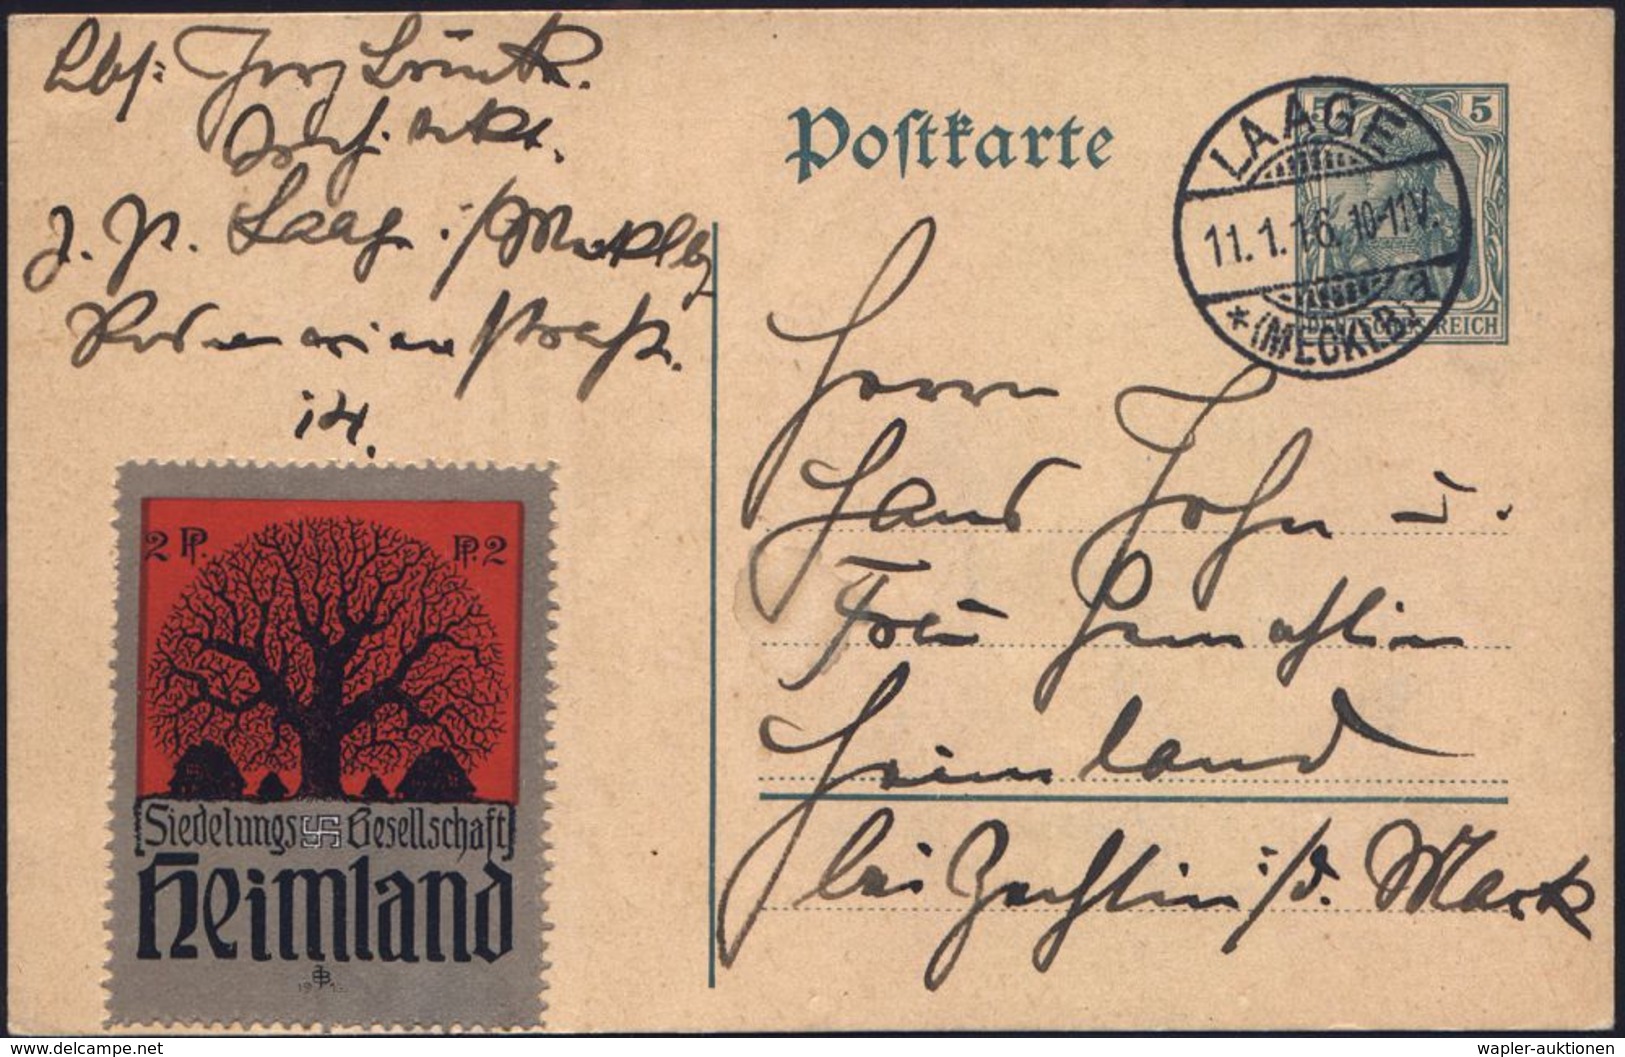 Abs:
Laage i/Meckllbg
14.
Postkarte
LAAGE
11.1.16. 10-11V.
a
* (MECKLB)
5 5
DEUTSCHES REICH
Herrn
Hans John u.
Frau Gemahlin
Heimland
bei Zechlin i/d. Mark
2 Pf. Pf. 2
Siedelungs Gesellschaft
Heimland
delcampe.net
wapler-auktionen